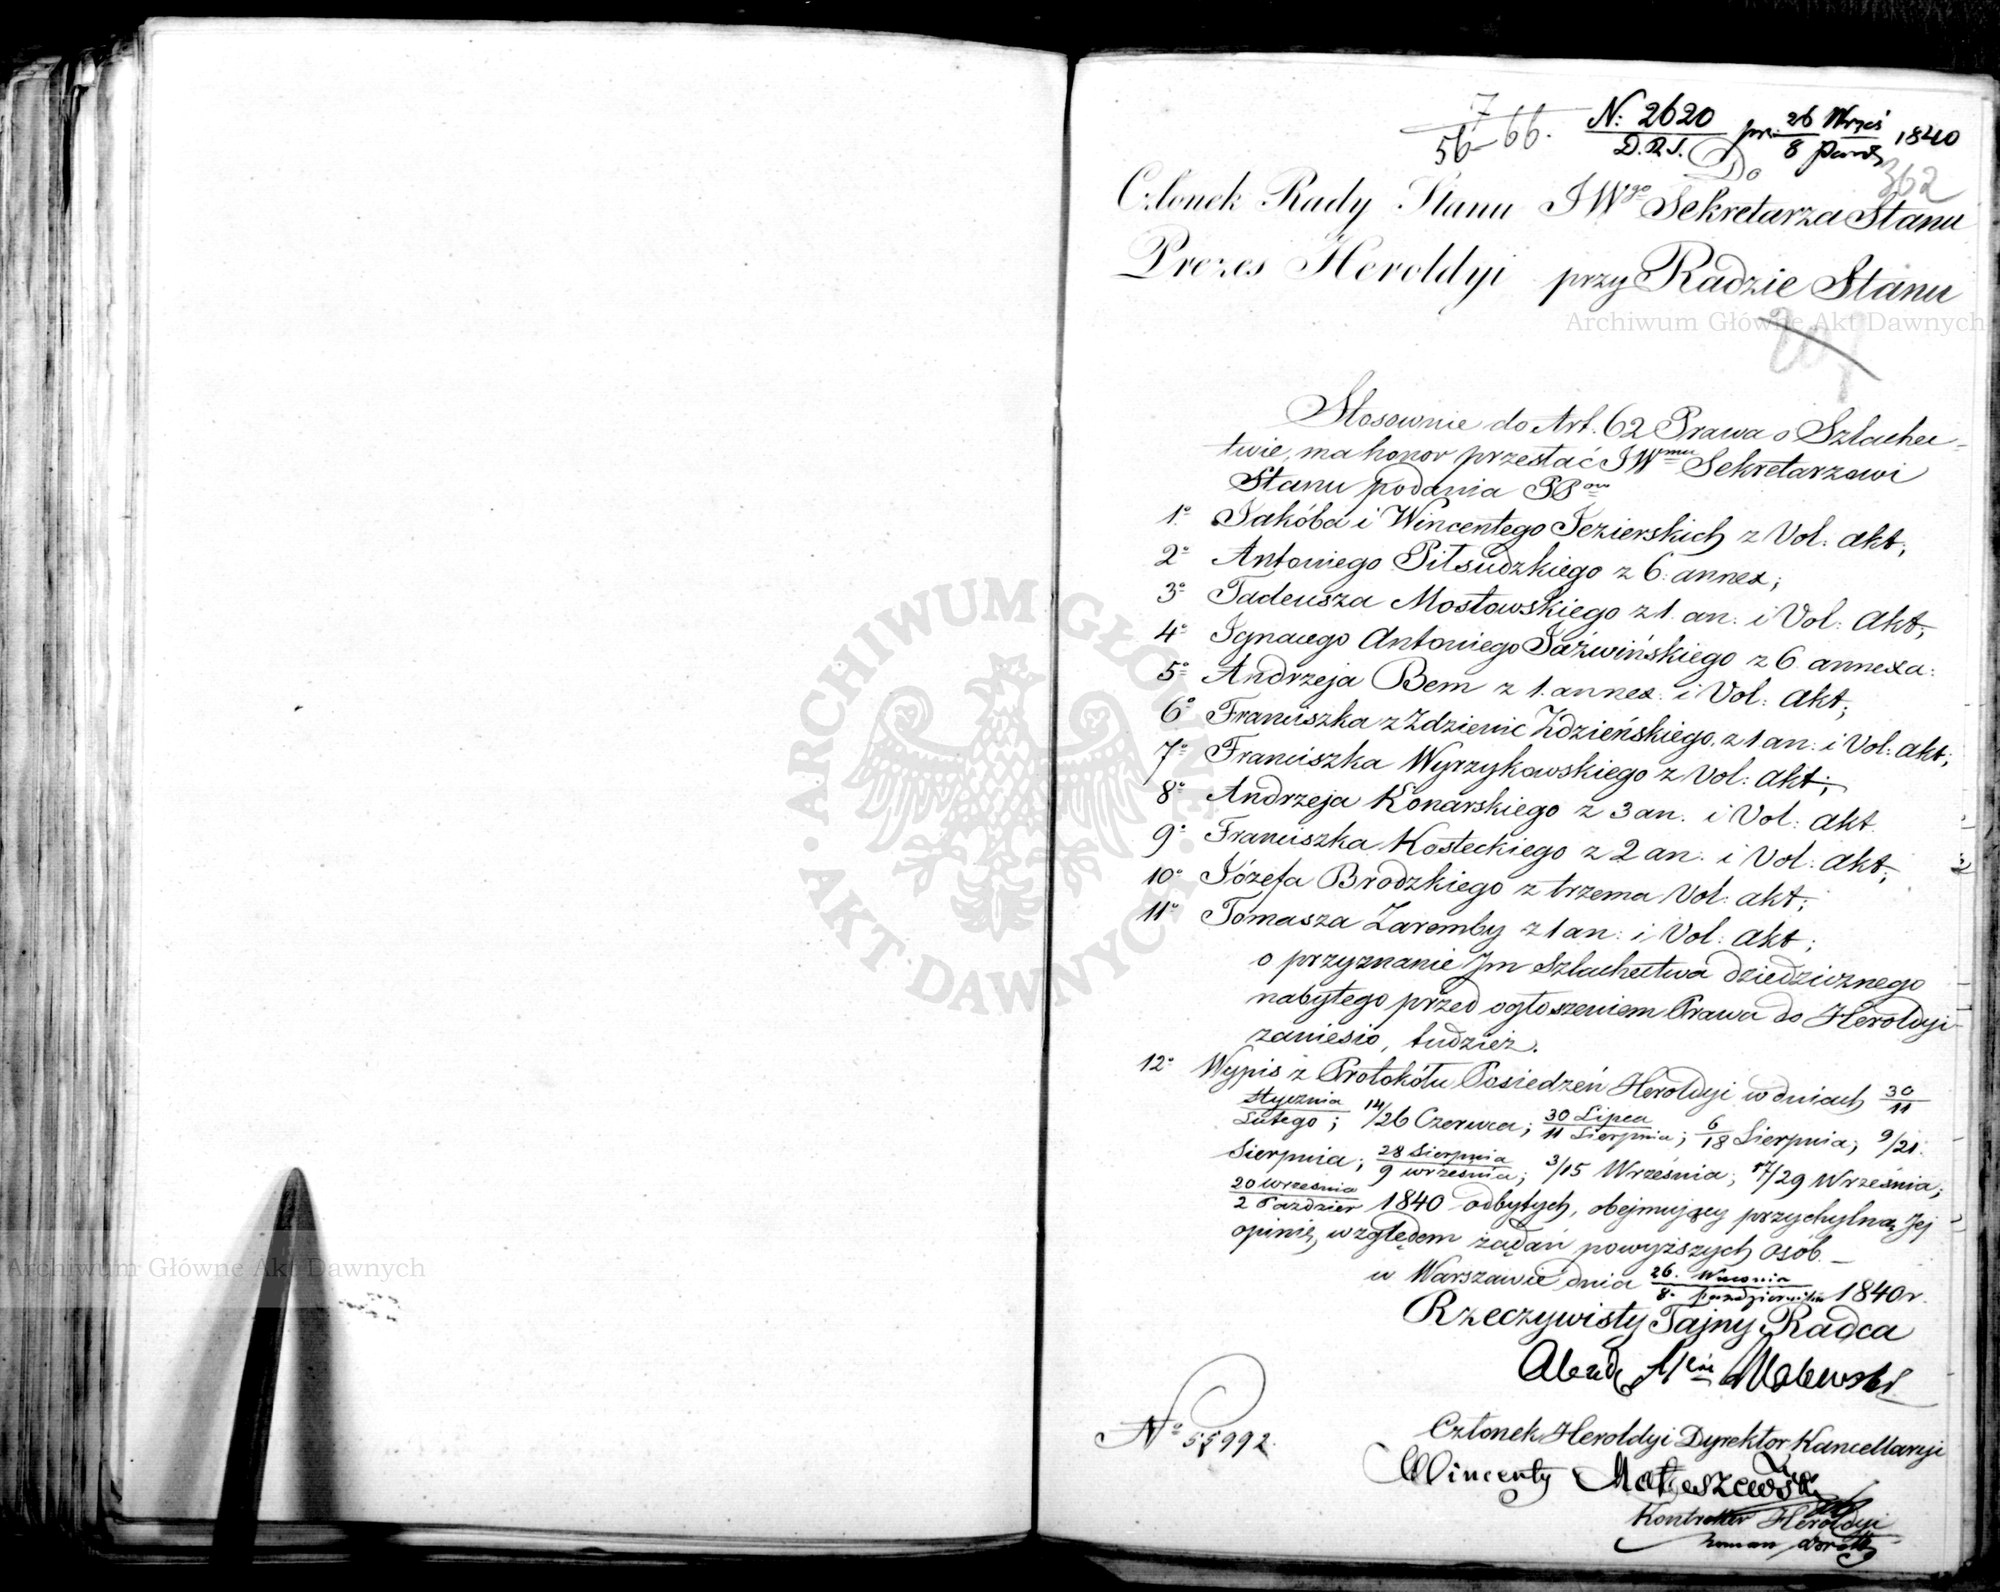 7
56-66.
N: 2620 pr. 26 Wrześ 1840
D.R.S. 8 Paźdz
362
Do
Członek Rady Stanu JWgo Sekretarza Stanu
Prezes Heroldyi przy Radzie Stanu
Archiwum Główne Akt Dawnych
Stosownie do Art. 62 Prawa o Szlachec-
twie, ma honor przesłać JWmu Sekretarzowi
Stanu podania PPow
1o Jakóba i Wincentego Jezierskich z Vol: akt;
2o Antoniego Piłsudzkiego z 6. annex;
3o Tadeusza Mostowskiego z 1. an: i Vol: Akt;
4o Ignacego Antoniego Jaźwińskiego z 6 annexa:
5o Andrzeja Bem z 1. annex: i Vol: Akt;
6o Franciszka z Zdzienic Zdzieńskiego, z 1 an: i Vol: akt;
7o Franciszka Wyrzykowskiego z Vol: akt;
8o Andrzeja Konarskiego z 3 an. i Vol: akt.
9o Franciszka Kosteckiego z 2 an: i Vol: akt;
10o Józefa Brodzkiego z trzema Vol: akt;
11o Tomasza Zaremby z 1 an: i Vol: akt;
o przyznanie Im Szlachectwa dziedzicznego
nabytego przed ogłoszeniem Prawa do Heroldyi
zaniesio, tudzież.
12o Wypis z Protokółu Posiedzeń Heroldyi w dniach 30/11
Stycznia/Lutego; 14/26 Czerwca; 30 Lipca/11 Sierpnia; 6/18 Sierpnia; 9/21
Sierpnia; 28 Sierpnia/9 września; 3/15 Września; 17/29 Września;
20 września/2 Paździer 1840 odbytych, obejmujący przychylną Jej
opinię, względem żądań powyższych osób. —
w Warszawie dnia 26. Września/8. października 1840 r.
Rzeczywisty Tajny Radca
Członek Heroldyi Dyrektor Kancellaryi
No 55992.
Wincenty Matuszewski
Kontroller Heroldyi
Roman
Archiwum Główne Akt Dawnych
ARCHIWUM GŁÓWNE · AKT · DAWNYCH ·